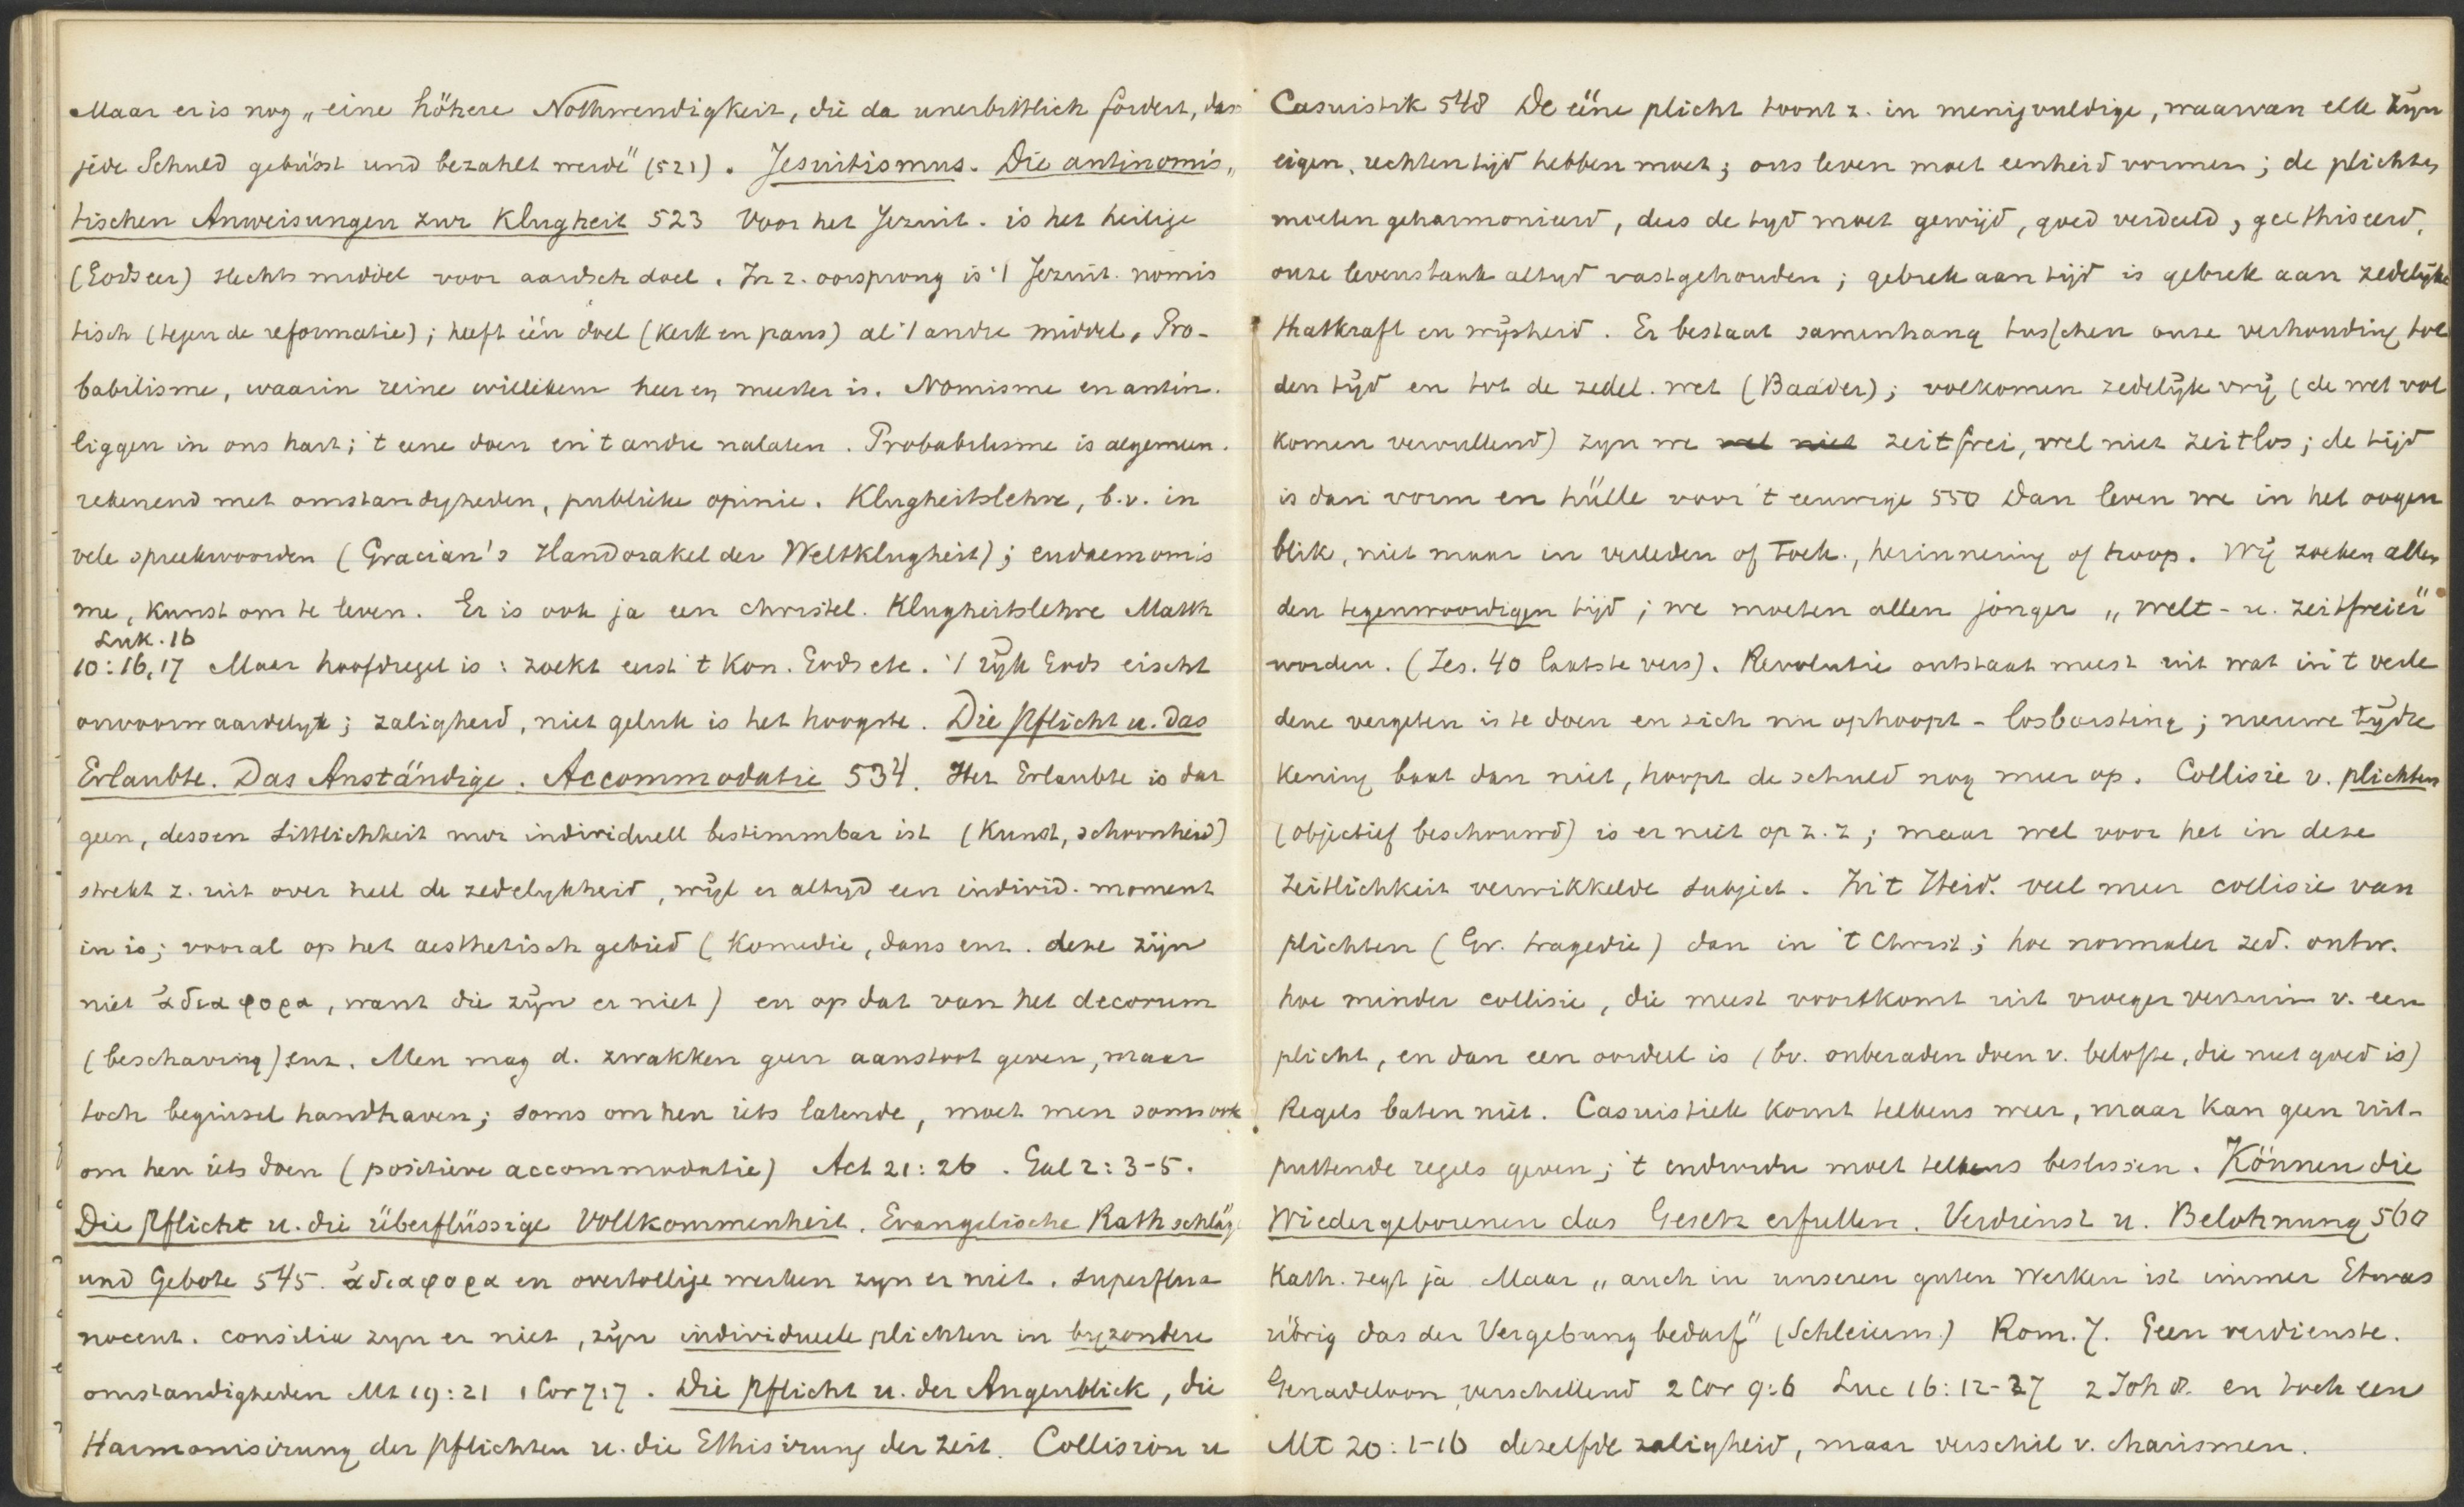 Maar er is nog „eine höhere Nothwendigkeit, die da unerbittlich fordert, dass
jede Schuld gebüsst und bezahlt werde" (521). Jesuitismus. Die antinomis„
tischen Anweisungen zur Klugheit 523 Voor het Jezuit. is het heilige
(Gods eer) slechts middel voor aardsch doel. In z. oorsprong is 't Jezuit. nomis
tisch (tegen de reformatie); heeft één doel (kerk en paus) al 't andre middel. Pro-
babilisme, waarin reine willekeur heer en meester is. Nomisme en antin.
liggen in ons hart; 't eene doen en 't andre nalaten. Probabilisme is algemeen.
rekenend met omstandigheden, publieke opinie. Klugheitslehre, b.v. in
vele spreekwoorden (Gracian's Handorakel der Weltklugheit); eudaemonis
me, kunst om te leven. Er is ook ja een christel. Klugheitslehre Matth
Luk. 16
10:16,17 Maar hoofdregel is: zoekt eerst 't Kon. Gods etc. 't rijk Gods eischt
onvoorwaardelijk; zaligheid, niet geluk is het hoogste. Die Pflicht u. das
Erlaubte. Das Anständige. Accommodatie 534. Het Erlaubte is dat
geen, dessen Sittlichkeit nur individuell bestimmbar ist (Kunst, schoonheid)
strekt z. uit over heel de zedelykheid, wijl er altyd een individ. moment
in is; vooral op het aesthetisch gebied (Komedie, dans enz. deze zijn
niet ἀδιαφορα, want die zijn er niet) en op dat van het decorum
(beschaving) enz. Men mag d. zwakken geen aanstoot geven, maar
toch beginsel handhaven; soms om hen iets latende, moet men soms ook
om hen iets doen (positieve accommodatie) Act 21:26. Gal 2:3-5.
Die Pflicht u. die überflüssige Vollkommenheit. Evangelische Rathschläge
und Gebote 545. ἀδιαφορα en overtollige werken zyn er niet. superflua
nocent. consilia zyn er niet, zijn individueele plichten in byzondere
omstandigheden Mt 19:21 1 Cor 7:7. Die Pflicht u. der Augenblick, die
Harmonisirung der Pflichten u. die Ethisirung der Zeit. Collision u
Casuistik 548 De ééne plicht toont z. in menigvuldige, waarvan elk zijn
eigen, rechten tijd hebben moet; ons leven moet eenheid vormen; de plichten
moeten geharmonieerd, dus de tyd moet gewijd, goed verdeeld, geethiseerd,
onze levenstaak altyd vastgehouden; gebrek aan tijd is gebrek aan zedelijke
thatkraft en wijsheid. Er bestaat samenhang tusschen onze verhouding tot
den tijd en tot de zedel. wet (Baader); volkomen zedelijk vrij (de wet vol
komen vervullend) zyn we wel niet zeitfrei, wel niet zeitlos; de tijd
is dan vorm en hülle voor 't eeuwige 550 Dan leven we in het oogen
blik, niet maar in verleden of toek., herinnering of hoop. Wij zoeken allen
den tegenwoordigen tijd; we moeten allen jonger „welt- u. zeitfreier"
worden. (Jes. 40 laatste vers). Revolutie ontstaat meest uit wat in 't verle
dene vergeten is te doen en zich nu ophoopt - losbarsting; nieuwe tijdre
kening baat dan niet, hoopt de schuld nog meer op. Collisie v. plichten
(objectief beschouwd) is er niet op z. z; maar wel voor het in deze
Zeitlichkeit verwikkelde subject. In 't Heid. veel meer collisie van
plichten (Gr. tragedie) dan in 't Christ; hoe normaler zed. ontw.
hoe minder collisie, die meest voortkomt uit vroeger verzuim v. een
plicht, en dan een oordeel is (bv. onberaden doen v. belofte, die niet goed is)
Regels baten niet. Casuistiek komt telkens weer, maar kan geen uit-
puttende regels geven; 't moet telkens beslissen. Können die
Wiedergeborenen das Gesetz erfullen. Verdienst u. Belohnung 560
Kath. zegt ja Maar „auch in unseren guten Werken ist immer Etwas
übrig das der Vergebung bedarf" (Schleierm.) Rom. 7. Geen verdienste.
Genadeloon, verschillend 2 Cor 9:6 Luc 16:12-27 2 Joh 8. en toch een
Mt 20:1-16 dezelfde zaligheid, maar verschil v. charismen.